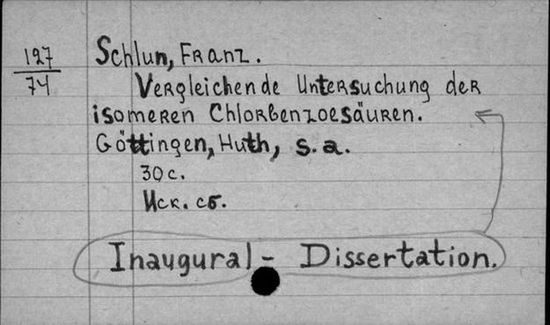 127
74
Schlun, Franz.
Vergleichende Untersuchung der
isomeren Chlorbenzoesäuren.
Göttingen, Huth, s.a.
30 c.
Иск. сб.
Inaugural - Dissertation.